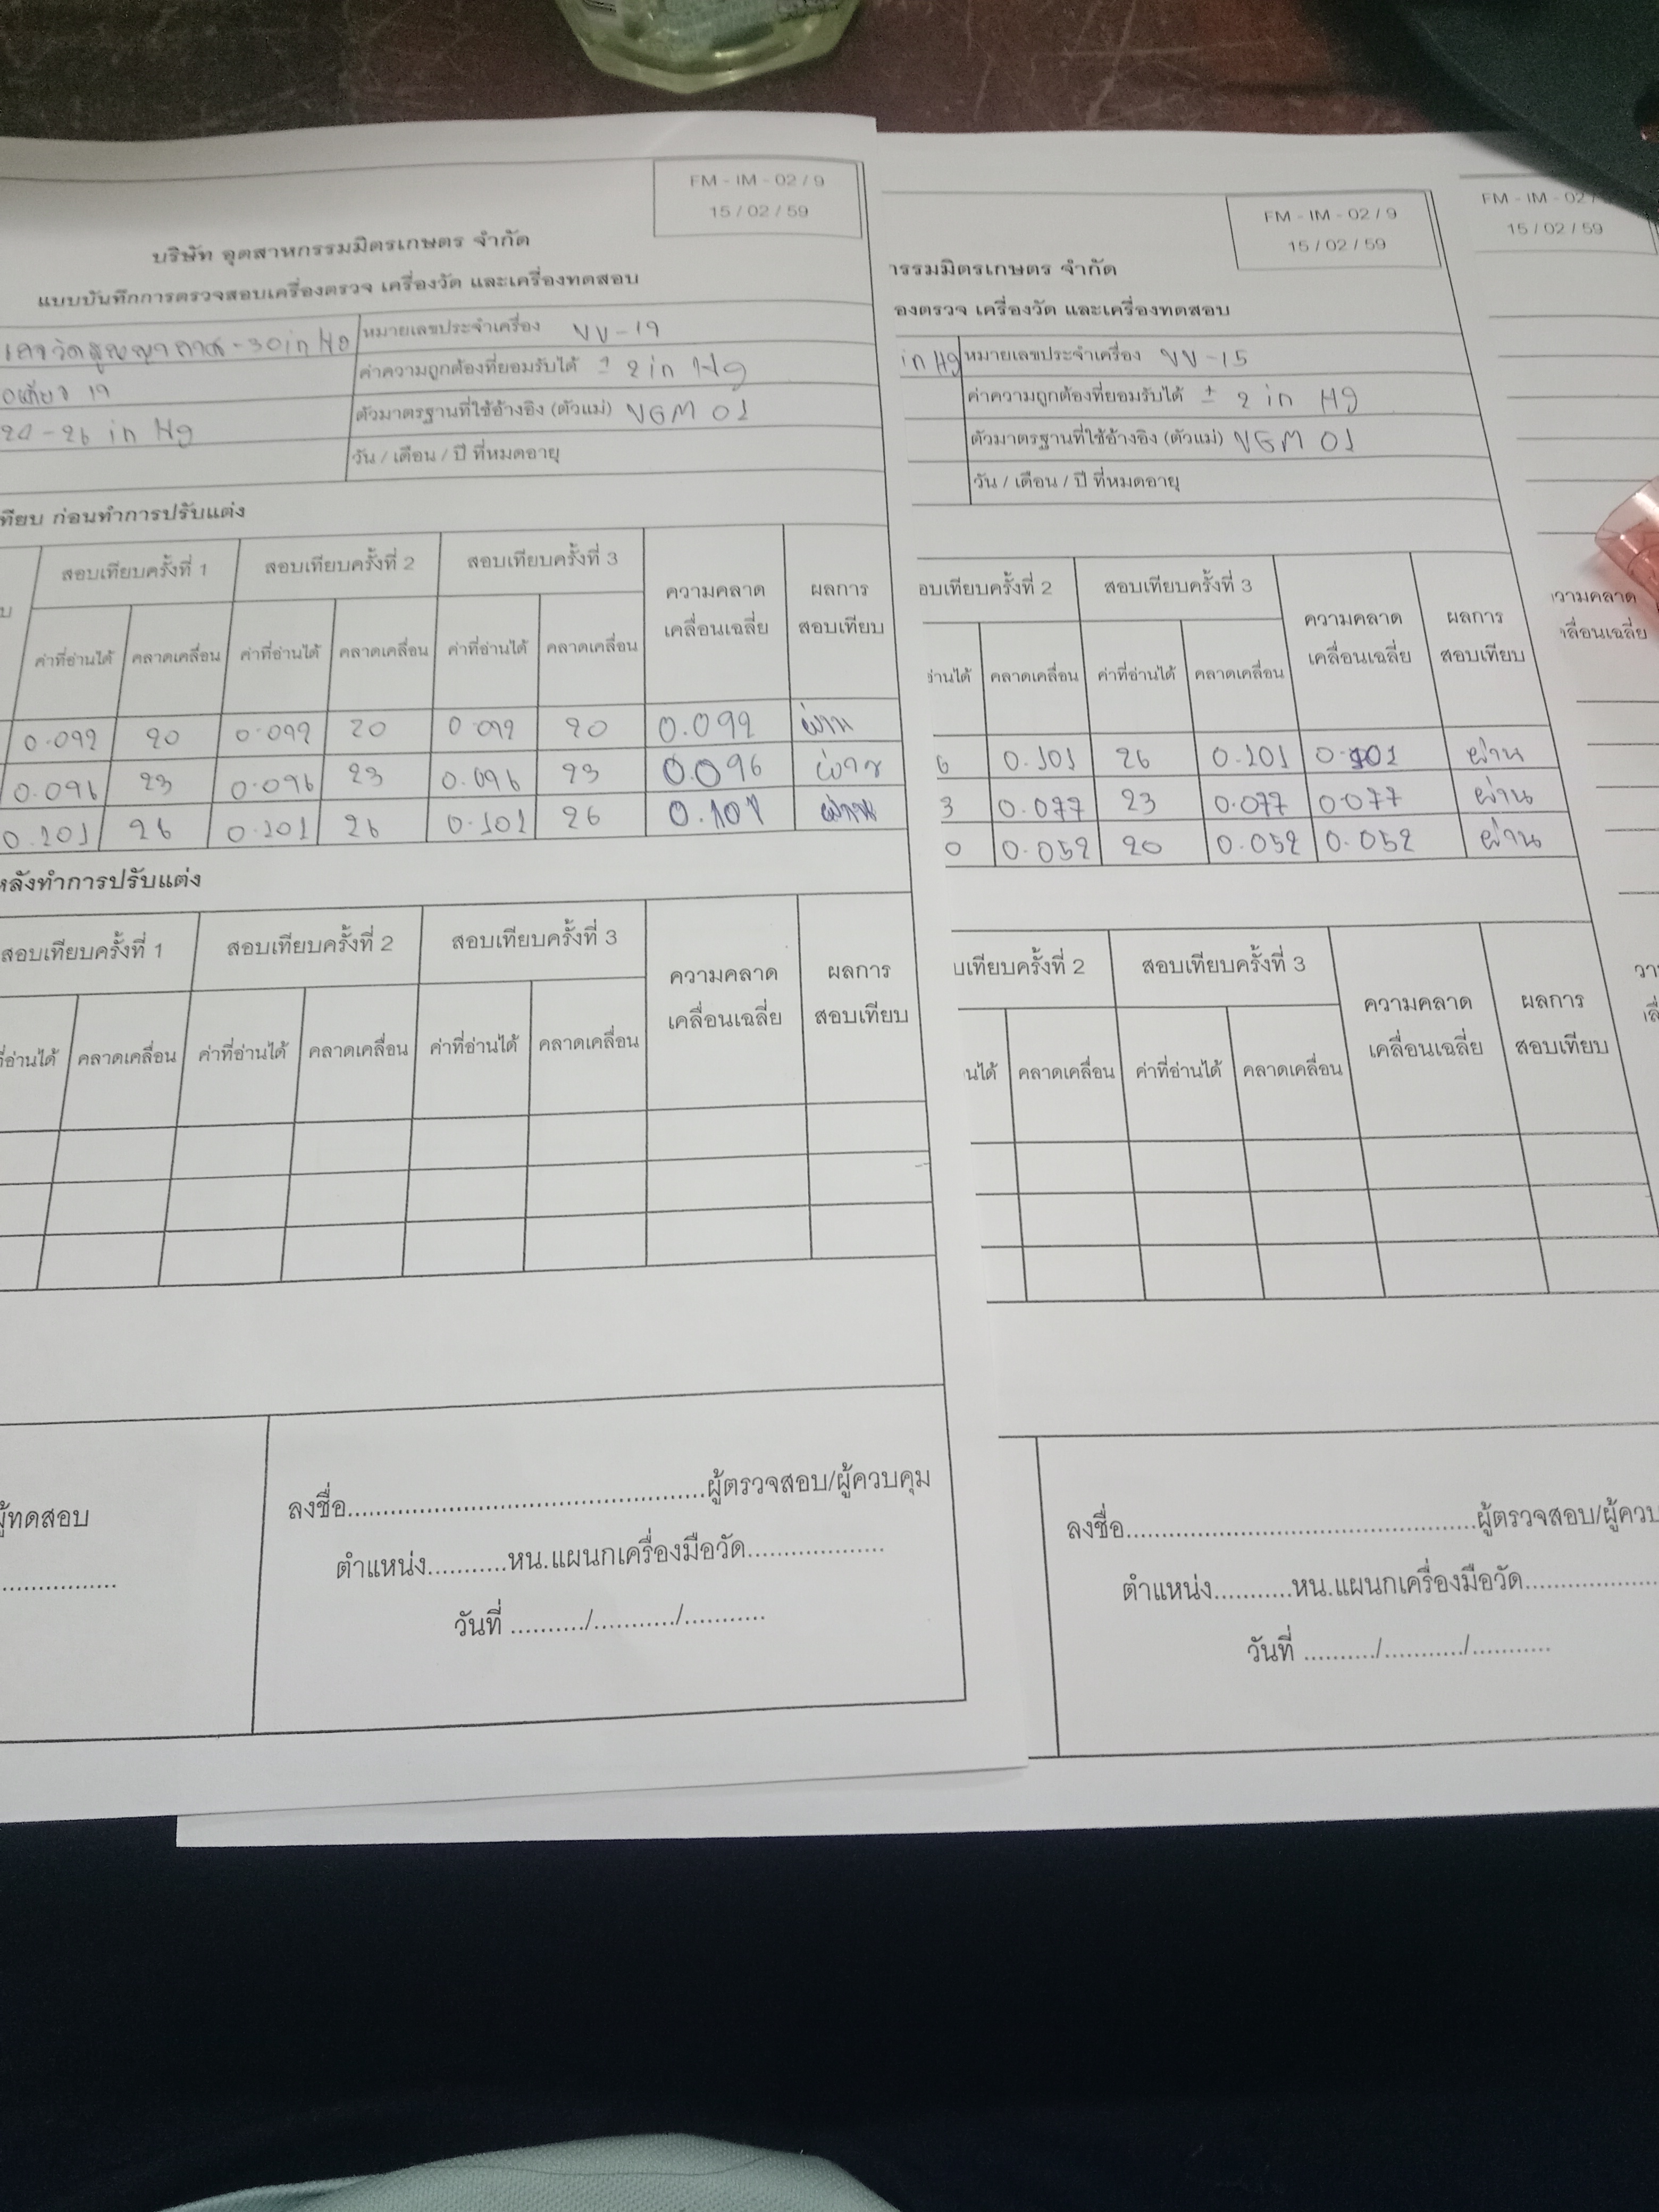 FM - IM - 02 / 9
15 / 02 / 59
บริษัท อุตสาหกรรมมิตรเกษตร จำกัด
แบบบันทึกการตรวจสอบเครื่องตรวจ เครื่องวัด และเครื่องทดสอบ
หมายเลขประจำเครื่อง VV-19
ค่าความถูกต้องที่ยอมรับได้ ± 2 in Hg
19
ตัวมาตรฐานที่ใช้อ้างอิง (ตัวแม่) VGM 01
26 in Hg
วัน / เดือน / ปี ที่หมดอายุ
ก่อนทำการปรับแต่ง
สอบเทียบครั้งที่ 1 สอบเทียบครั้งที่ 2 สอบเทียบครั้งที่ 3 ความคลาดเคลื่อนเฉลี่ย ผลการสอบเทียบ
ค่าที่อ่านได้ คลาดเคลื่อน ค่าที่อ่านได้ คลาดเคลื่อน ค่าที่อ่านได้ คลาดเคลื่อน
0.092 20 0.092 20 0.092 20 0.092 ผ่าน
0.096 23 0.096 23 0.096 23 0.096 ผ่าน
0.101 26 0.101 26 0.101 26 0.101 ผ่าน
หลังทำการปรับแต่ง
สอบเทียบครั้งที่ 1 สอบเทียบครั้งที่ 2 สอบเทียบครั้งที่ 3 ความคลาดเคลื่อนเฉลี่ย ผลการสอบเทียบ
คลาดเคลื่อน ค่าที่อ่านได้ คลาดเคลื่อน ค่าที่อ่านได้ คลาดเคลื่อน
ผู้ทดสอบ
ลงชื่อ..................................................ผู้ตรวจสอบ/ผู้ควบคุม
ตำแหน่ง...........หน.แผนกเครื่องมือวัด...................
วันที่ ........../.........../...........
FM - IM - 02 / 9
15 / 02 / 59
กรรมมิตรเกษตร จำกัด
องตรวจ เครื่องวัด และเครื่องทดสอบ
in Hg หมายเลขประจำเครื่อง VV-15
ค่าความถูกต้องที่ยอมรับได้ ± 2 in Hg
ตัวมาตรฐานที่ใช้อ้างอิง (ตัวแม่) VGM 01
วัน / เดือน / ปี ที่หมดอายุ
อบเทียบครั้งที่ 2 สอบเทียบครั้งที่ 3 ความคลาดเคลื่อนเฉลี่ย ผลการสอบเทียบ
อ่านได้ คลาดเคลื่อน ค่าที่อ่านได้ คลาดเคลื่อน
6 0.101 26 0.101 0.101 ผ่าน
3 0.077 23 0.077 0.077 ผ่าน
0 0.052 20 0.052 0.052 ผ่าน
บเทียบครั้งที่ 2 สอบเทียบครั้งที่ 3 ความคลาดเคลื่อนเฉลี่ย ผลการสอบเทียบ
นได้ คลาดเคลื่อน ค่าที่อ่านได้ คลาดเคลื่อน
ลงชื่อ..................................................ผู้ตรวจสอบ/ผู้ควบ
ตำแหน่ง...........หน.แผนกเครื่องมือวัด...................
วันที่ ........../.........../...........
FM - IM - 02 /
15 / 02 / 59
วามคลาด
ลื่อนเฉลี่ย